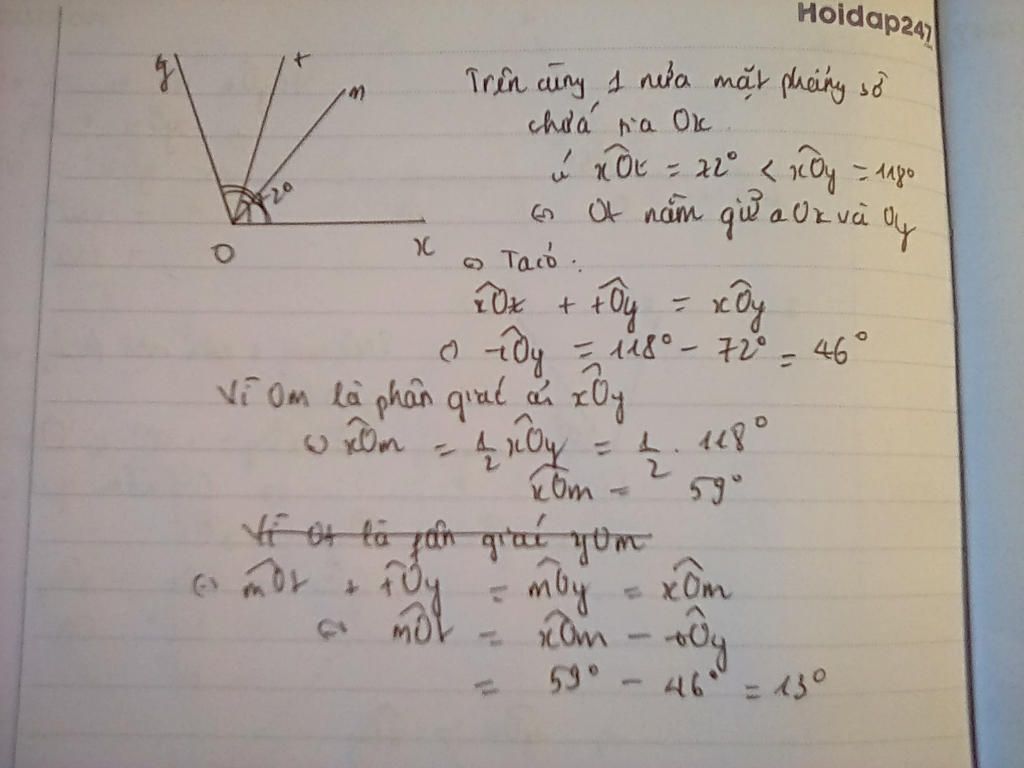 Hoidap247
y t m
72°
O x
Trên cùng 1 nửa mặt phẳng bờ
chứa tia Ox
có xOt = 72° < xOy = 118°
⇔ Ot nằm giữa Ox và Oy
⇔ Ta có :
xOt + tOy = xOy
tOy = 118° - 72° = 46°
Vì Om là phân giác xOy
xOm = 1/2 xOy = 1/2 . 118°
xOm = 59°
Vì Ot là phân giác yOm
⇔ mOt + tOy = mOy = xOm
⇔ mOt = xOm - tOy
= 59° - 46° = 13°